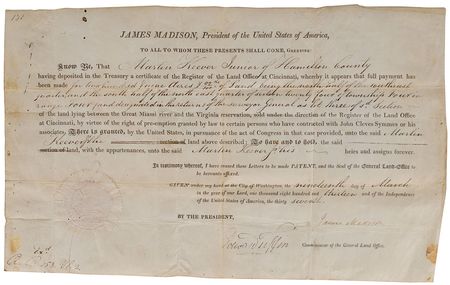 JAMES MADISON, President of the United States of America,
TO ALL TO WHOM THESE PRESENTS SHALL COME, GREETING:
Know Ye, That Martin Keever Junior of Hamilton County
having deposited in the Treasury a certificate of the Register of the Land Office at Cincinnati, whereby it appears that full payment has been
made for two hundred nine acres of land being the
quarter and the south half of the north east quarter of section twenty four of township four in
range four and designated in the returns of the surveyor general as
of the land lying between the Great Miami river and the Virginia reservation, sold under the direction of the Register of the Land Office
at Cincinnati, by virtue of the right of pre-emption granted by law to certain persons who have contracted with John Cleves Symmes or his
associates, There is granted, by the United States, in pursuance of the act of Congress in that case provided, unto the said Martin
Keever land above described: To have and to hold, the said
section of land, with the appurtenances, unto the said Martin Keever his heirs and assigns forever.
In testimony whereof, I have caused these Letters to be made PATENT, and the Seal of the General Land-Office
to be hereunto affixed.
GIVEN under my hand at the City of Washington, the nineteenth day of March
in the year of our Lord, one thousand eight hundred and thirteen and of the Independence
of the United States of America, the thirty seventh.
BY THE PRESIDENT,
James Madison
Edward Tiffin
Commissioner of the General Land Office.